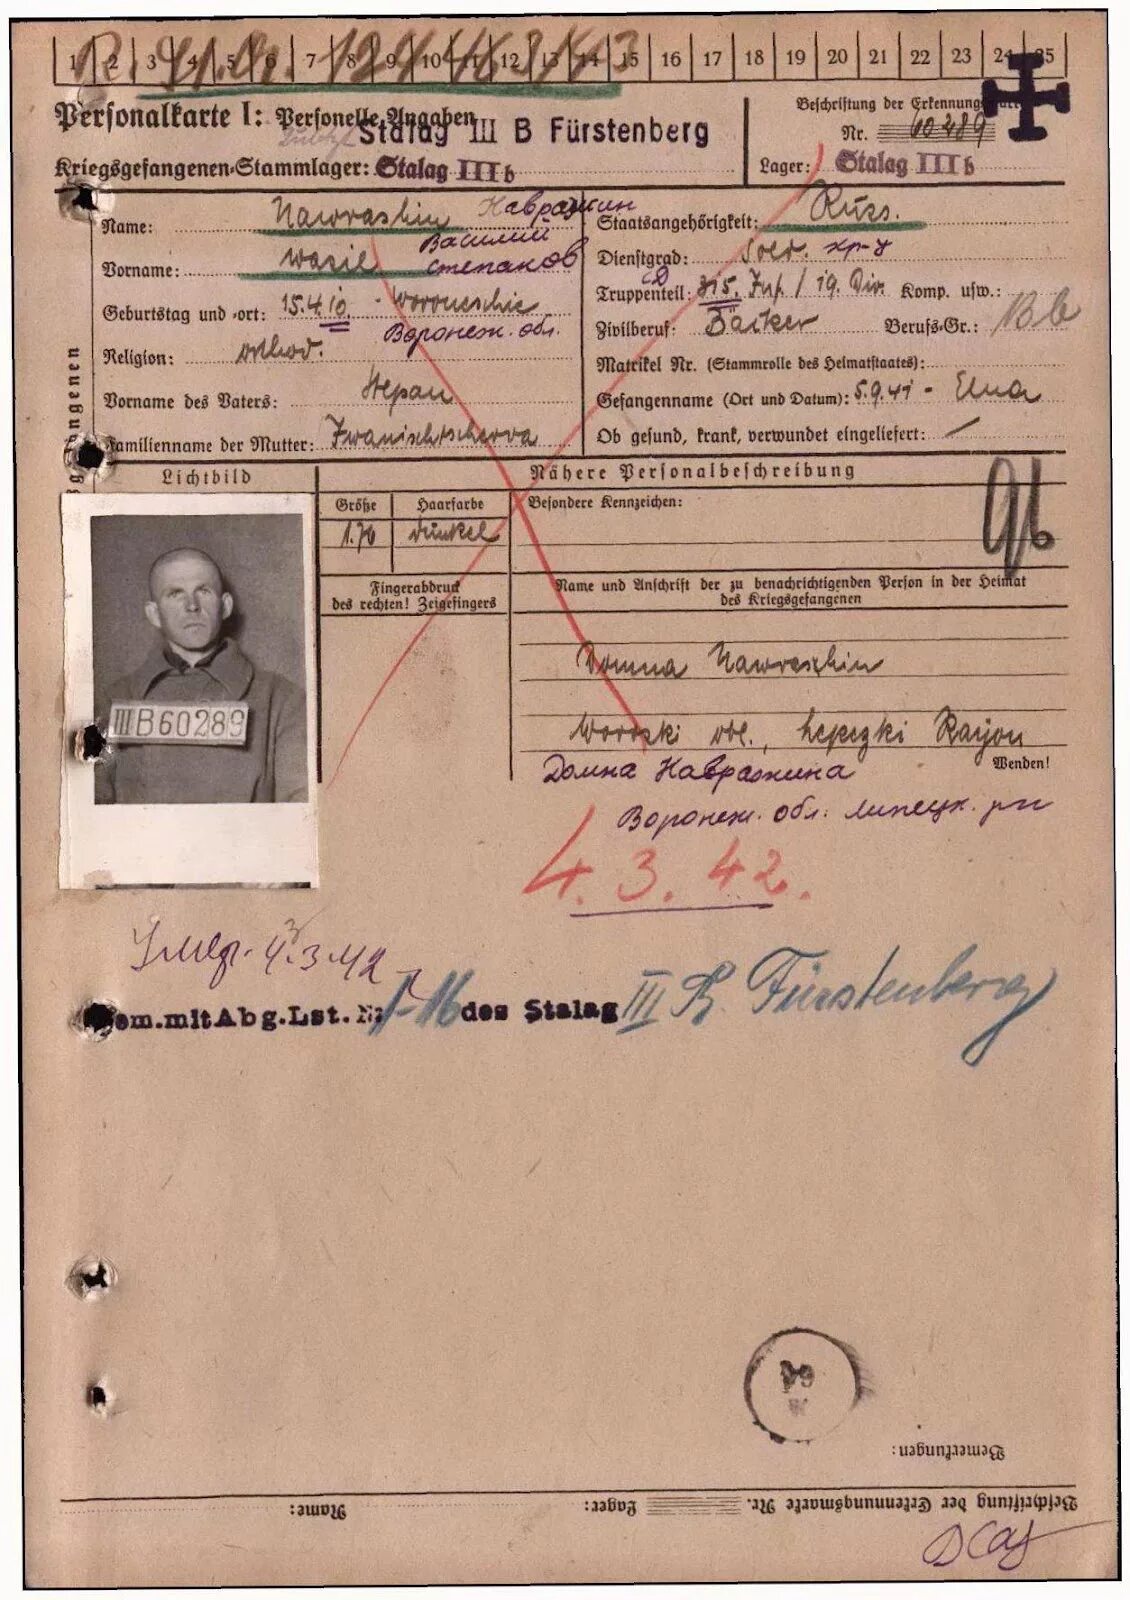 1 2 3 4 5 6 7 8 9 10 11 12 13 14 15 16 17 18 19 20 21 22 23 24 25
Personalkarte I: Personelle Angaben
Stalag III B Fürstenberg
Kriegsgefangenen-Stammlager: Stalag III b
Beschriftung der Erkennungsmarke
Nr. 60289
Lager: Stalag III b
Name: Nawraschin Навражин
Vorname: Wasil Василий Степанов
Geburtstag und -ort: 15.4.10 - Woroneschie
Воронеж. обл.
Religion: orthod.
Vorname des Vaters: Stepan
Familienname der Mutter: Iwanischtscherva
Staatsangehörigkeit: Russ.
Dienstgrad: Sold. кр-ц
Truppenteil: 315. Inf./19. Div. Komp. usw.:
Zivilberuf: Bäcker Berufs-Gr.: Bb
Matrikel Nr. (Stammrolle des Heimatstaates):
Gefangenname (Ort und Datum): 5.9.41 - Elna
Ob gesund, krank, verwundet eingeliefert: /
Lichtbild
Nähere Personalbeschreibung
Größe Haarfarbe Besondere Kennzeichen:
1.76 dunkel
Fingerabdruck
des rechten! Zeigefingers
Name und Anschrift der zu benachrichtigenden Person in der Heimat
des Kriegsgefangenen
III B 60289
Domna Nawraschin
obl., Rayon
Wenden!
Домна Навражина
Воронеж. обл. Липецк. р-н
4.3.42.
Умер. 4.3.42
Gem.mit Abg.Lst.Nr. 1-16 des Stalag III B Fürstenberg
Bemerkungen:
Name: Lager: Beschriftung der Erkennungsmarke Nr.